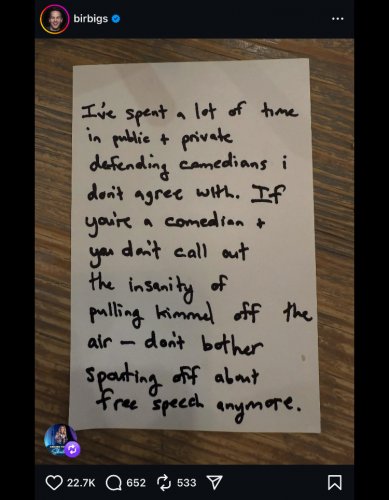 birbigs
I've spent a lot of time
in public + private
defending comedians i
don't agree with. If
you're a comedian +
you don't call out
the insanity of
pulling kimmel off the
air — don't bother
spouting off about
free speech anymore.
22.7K 652 533